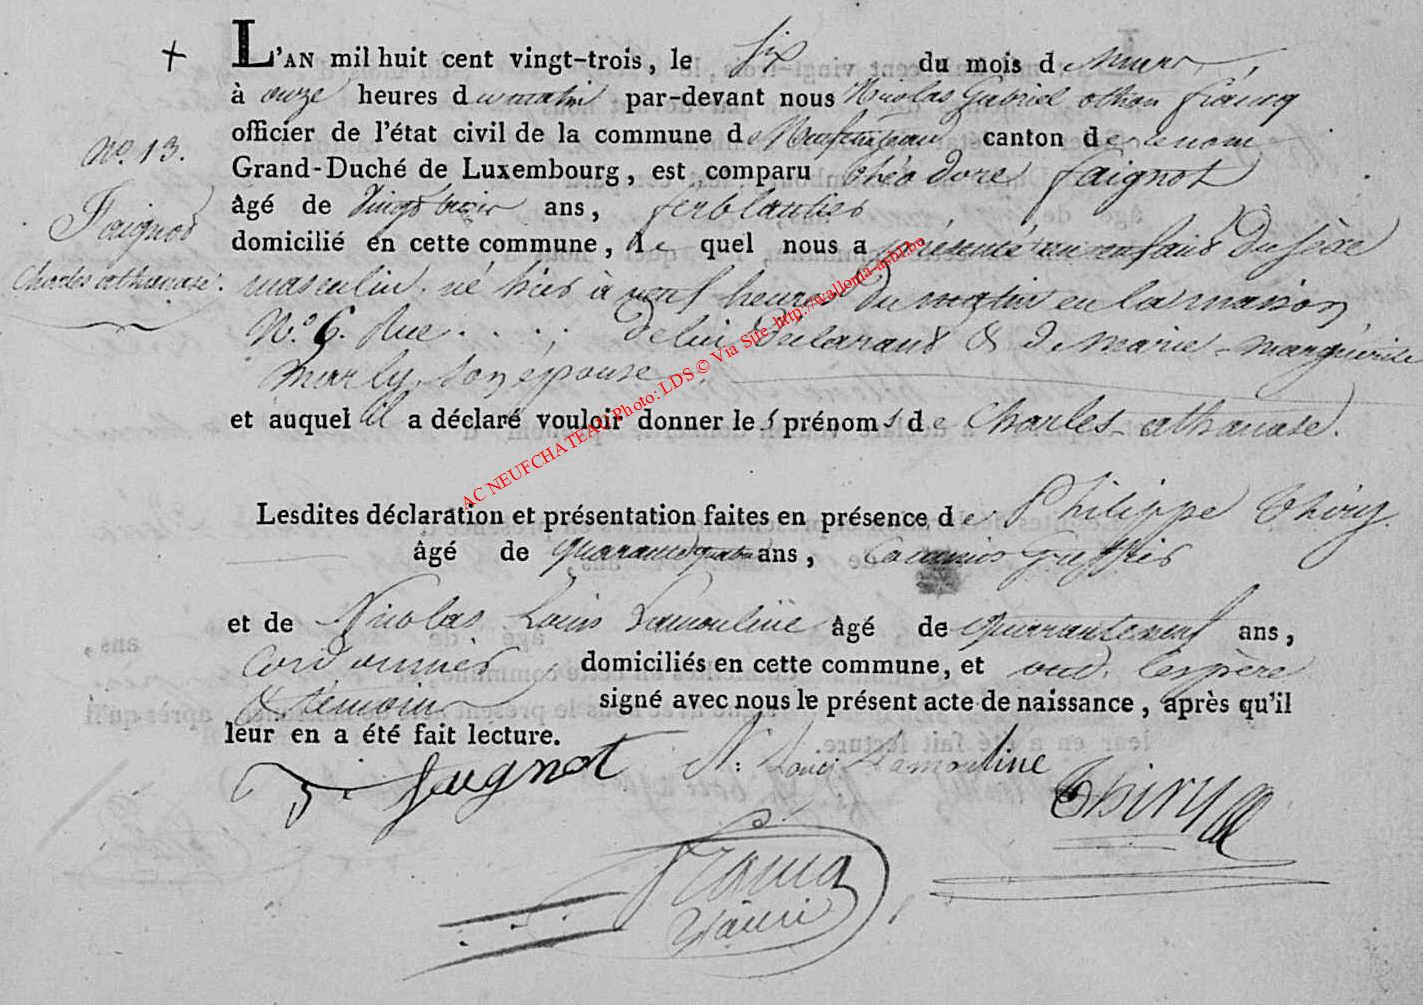 + L'AN mil huit cent vingt-trois, le six du mois de mars
à onze heures du matin par-devant nous Nicolas Gabriel othon Francq
officier de l'état civil de la commune de Neufchateau canton de ce nom
N.o 13. Grand-Duché de Luxembourg, est comparu théodore faignot
âgé de vingt trois ans, ferblantier
Faignot domicilié en cette commune, le quel nous a présenté un enfant du sexe
Charles athanase. masculin. né hier à neuf heures du matin en la maison
N.o 6. Rue . . . . de lui Déclarant & de marie-marguerite
Marly, son épouse
et auquel il a déclaré vouloir donner les prénoms de Charles-athanase.
AC NEUFCHATEAU Photo: LDS © Via Site http://wallonia-asbl.be
Lesdites déclaration et présentation faites en présence de Philippe thiry.
âgé de quarante quatre ans, Commis Greffier
et de Nicolas Louis Lamouline âgé de quarante neuf ans,
Cordonnier domiciliés en cette commune, et ont les père
& témoins signé avec nous le présent acte de naissance, après qu'il
leur en a été fait lecture.
faignot N: Louis Lamouline
Thiry
Francq